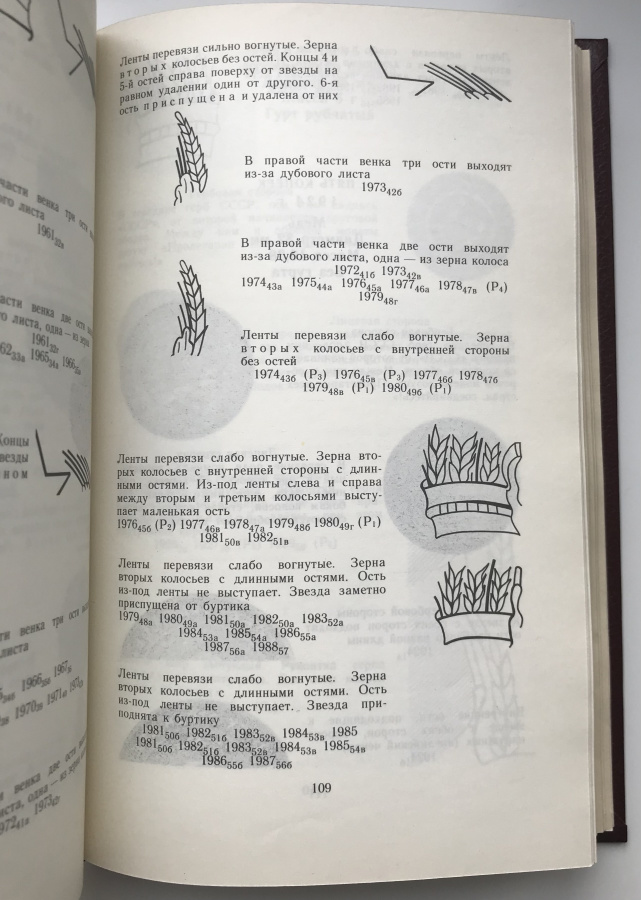 Ленты перевязи сильно вогнутые. Зерна
вторых колосьев без остей. Концы 4 и
5-й остей справа поверху от звезды на
равном удалении один от другого. 6-я
ость приспущена и удалена от них
В правой части венка три ости выходят
из-за дубового листа
1973₄₂б
В правой части венка две ости выходят
из-за дубового листа, одна — из зерна колоса
1972₄₁б 1973₄₂в
1974₄₃а 1975₄₄а 1976₄₅а 1977₄₆а 1978₄₇в (Р₄)
1979₄₈г
Ленты перевязи слабо вогнутые. Зерна
вторых колосьев с внутренней стороны
без остей
1974₄₃б (Р₃) 1976₄₅в (Р₃) 1977₄₆б 1978₄₇б
1979₄₈в (Р₁) 1980₄₉б (Р₁)
Ленты перевязи слабо вогнутые. Зерна вто-
рых колосьев с внутренней стороны с длин-
ными остями. Из-под ленты слева и справа
между вторым и третьим колосьями высту-
пает маленькая ость
1976₄₅б (Р₂) 1977₄₆в 1978₄₇а 1979₄₈б 1980₄₉г (Р₁)
1981₅₀в 1982₅₁в
Ленты перевязи слабо вогнутые. Зерна
вторых колосьев с длинными остями. Ость
из-под ленты не выступает. Звезда заметно
приспущена от буртика
1979₄₈а 1980₄₉а 1981₅₀а 1982₅₀а 1983₅₂а
1984₅₃а 1985₅₄а 1986₅₅а
1987₅₆а 1988₅₇
Ленты перевязи слабо вогнутые. Зерна
вторых колосьев с длинными остями. Ость
из-под ленты не выступает. Звезда при-
поднята к буртику
1981₅₀б 1982₅₁б 1983₅₂в 1984₅₃в 1985
1981₅₀б 1982₅₁б 1983₅₂в 1984₅₃в 1985₅₄в
1986₅₅б 1987₅₆б
109